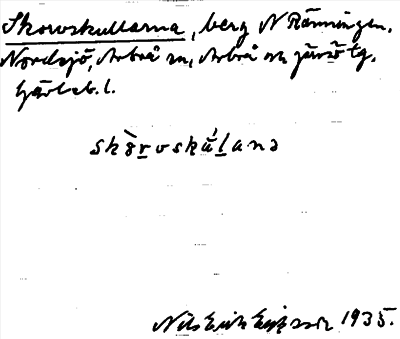 Skorvskullarna, berg N Ränningen.
Nordsjö, Arbrå sn, Arbrå och Järvsö tg,
Gävleb. l.
skòrvskúlana
Nils Erik Eriksson 1935.